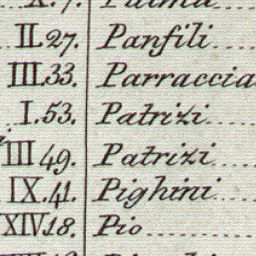 X.7. Palma
II.27. Panfili
III.33. Parraccia
I.53. Patrizi
III 49. Patrizi
IX.41. Pighini
XIV.18. Pio